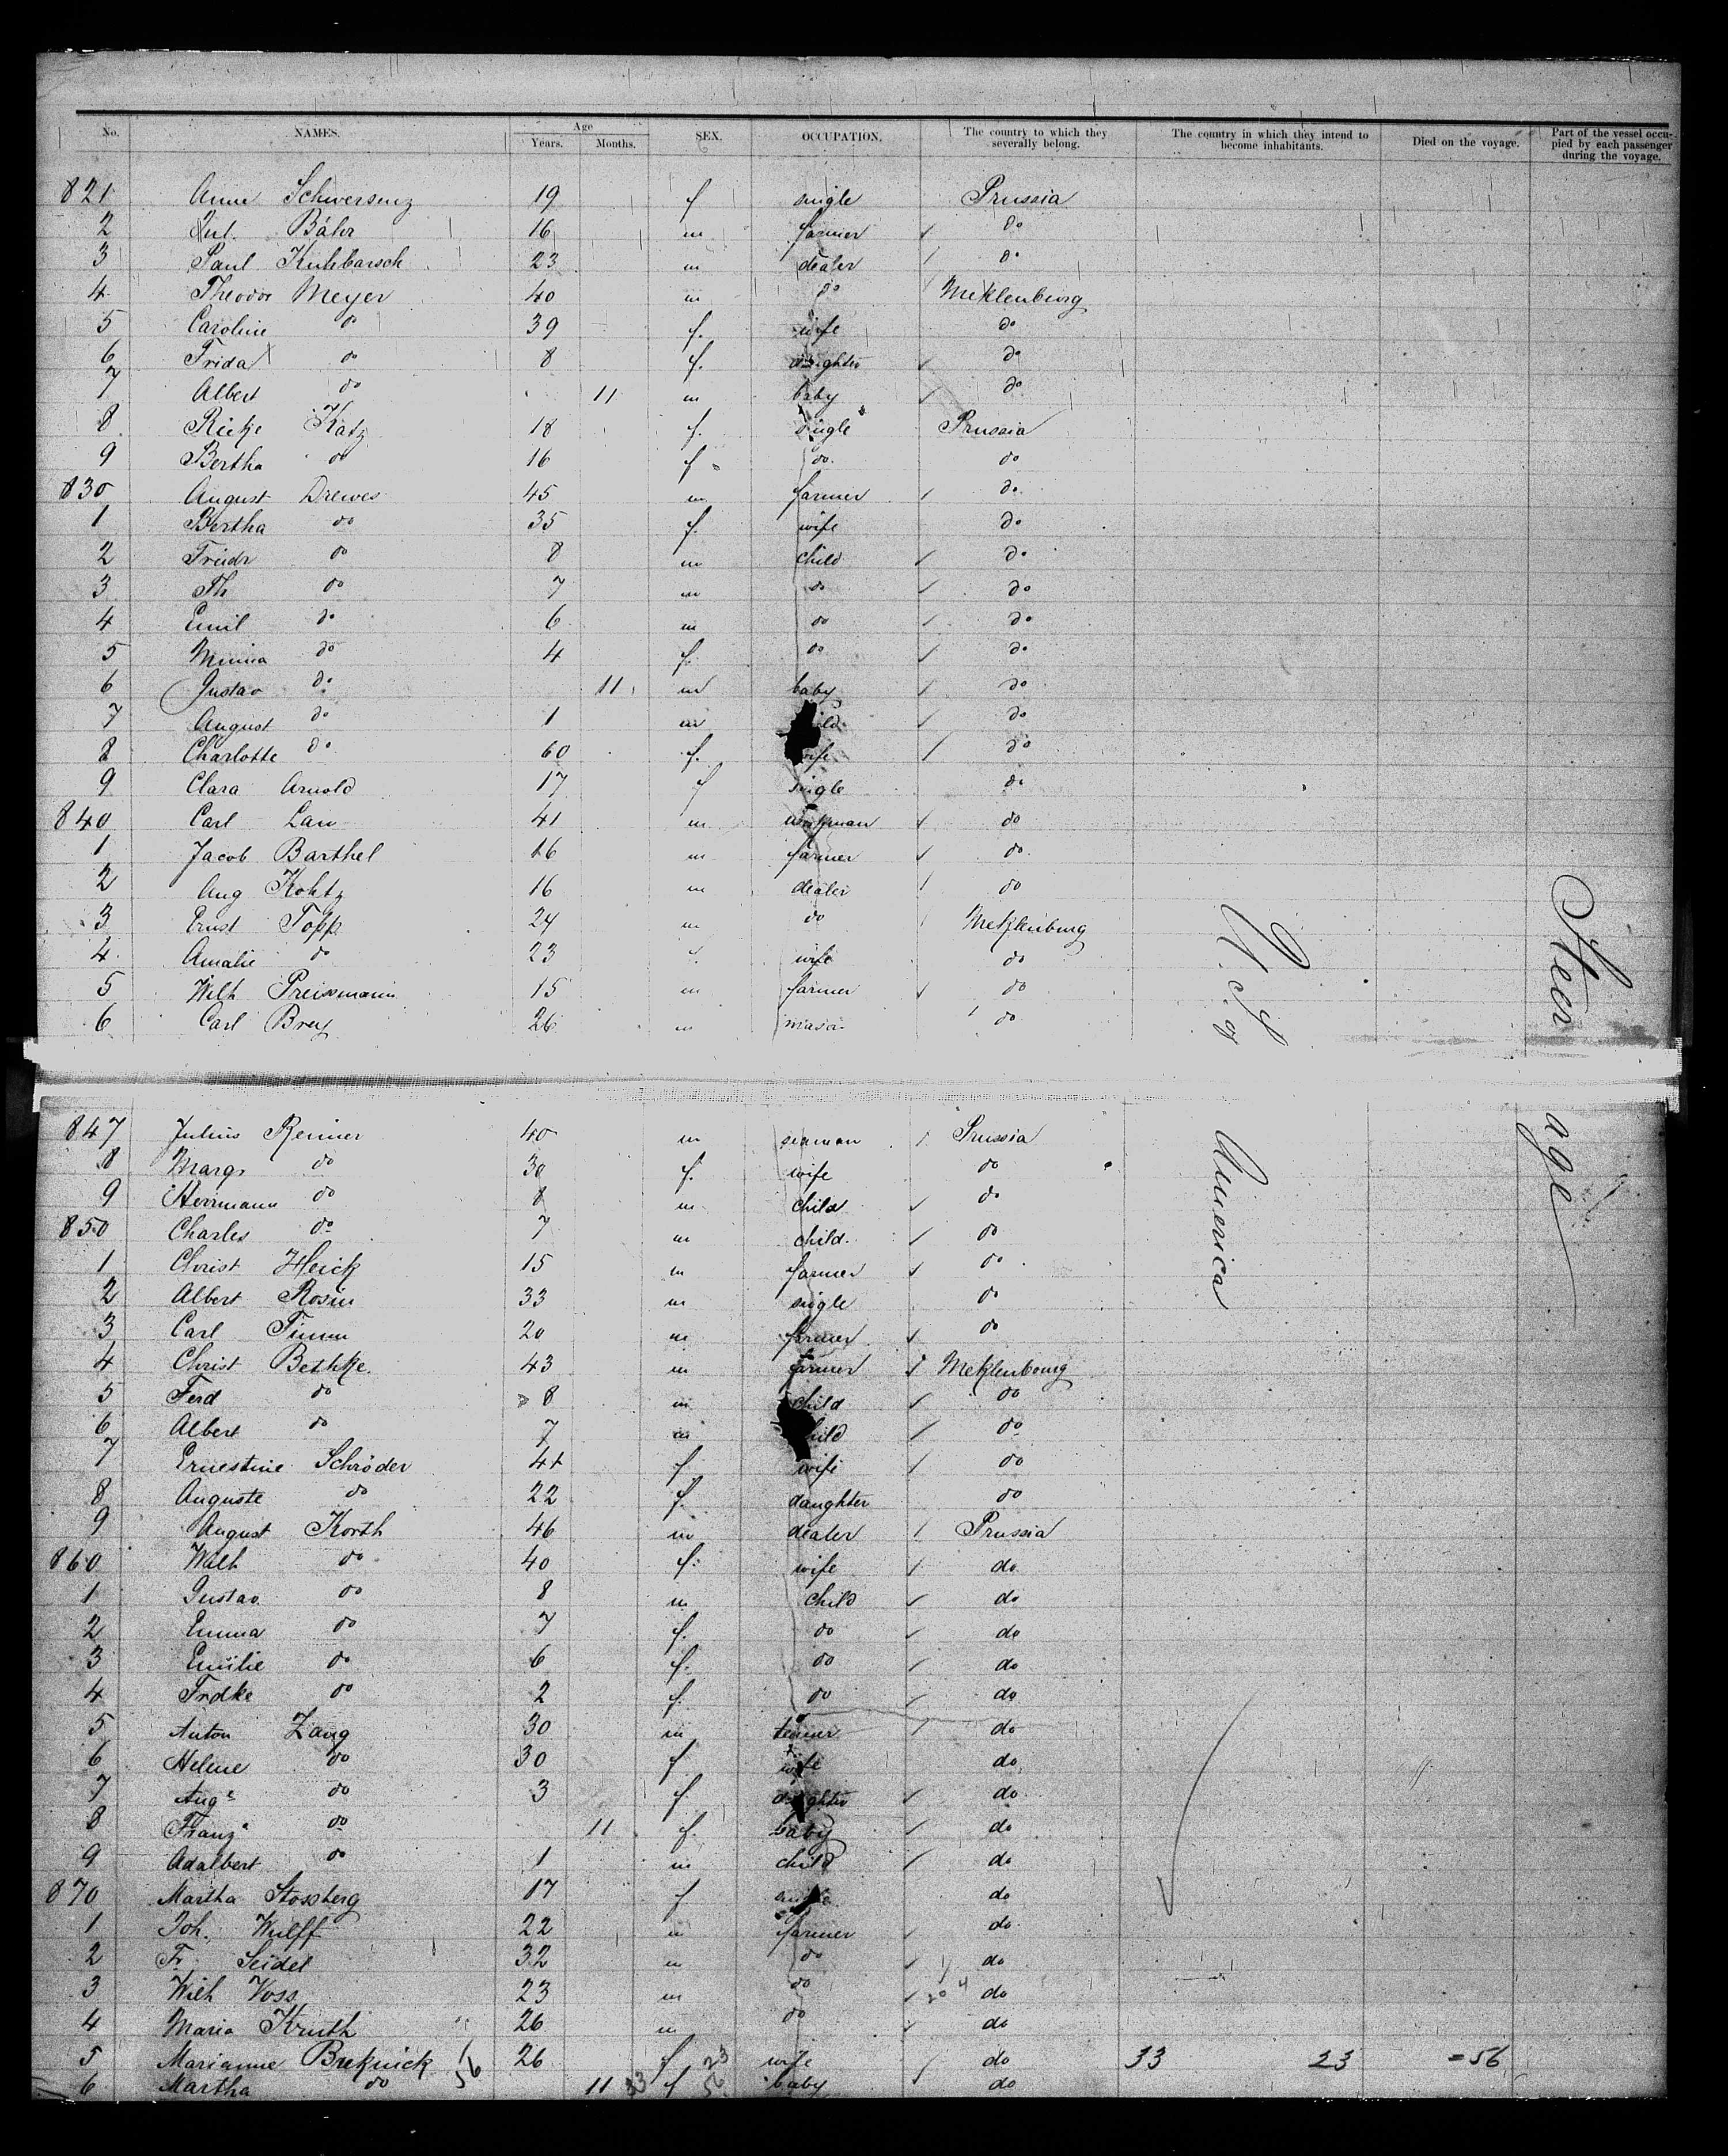 No. NAMES. Age Years. Months. SEX. OCCUPATION. The country to which they severally belong. The country in which they intend to become inhabitants. Died on the voyage. Part of the vessel occupied by each passenger during the voyage.
821 Anna Schwersenz 19 f single Prussia
2 Jul. Bähr 16 m farmer do
3 Paul Kuhbarsch 23 m dealer do
4 Theodor Meyer 40 m do Meklenburg
5 Caroline do 39 f. wife do
6 Frida do 8 f. daughter do
7 Albert do 11 m baby do
8 Rieke Katz 18 f. single Prussia
9 Bertha do 16 f do do
830 August Drewes 45 m farmer do
1 Bertha do 35 f. wife do
2 Friedr do 8 m child do
3 Th do 7 m do do
4 Emil do 6 m do do
5 Minna do 4 f. do do
6 Gustav do 11 m baby do
7 August do 1 m child do
8 Charlotte do 60 f. wife do
9 Clara Arnold 17 f single do
840 Carl Lau 41 m workman do
1 Jacob Barthel 16 m farmer do
2 Aug Kohtz 16 m dealer do
3 Ernst Topp 24 m do Meklenburg
4 Amalie do 23 f. wife do
5 Wilh Preissmann 15 m farmer do
6 Carl Brey 26 m mason do
U. S. of America
Steerage
847 Julius Renner 40 m seaman Prussia
8 Margr do 30 f. wife do
9 Herrmann do 8 m child do
850 Charles do 7 m child. do
1 Christ Heick 15 m farmer do
2 Albert Rosin 33 m single do
3 Carl Timm 20 m farmer do
4 Christ Bethke. 43 m farmer Meklenbourg
5 Ferd do 8 m child do
6 Albert do 7 m child do
7 Ernestine Schröder 44 f wife do
8 Auguste do 22 f. daughter do
9 August Korth 46 m dealer Prussia
860 Wilh do 40 f. wife do
1 Gustav do 8 m child do
2 Emma do 7 f. do do
3 Emilie do 6 f. do do
4 Frdke do 2 f. do do
5 Anton Zang 30 m do
6 Helene do 30 f wife do
7 Auge do 3 f. daughter do
8 Franza do 11 f. baby do
9 Adalbert do 1 m child do
870 Martha Stossberg 17 f single do
1 Joh. Wulff 22 m farmer do
2 Fr. Seidel 32 m do do
3 Wilh Voss 23 m do do
4 Maria Kruth 26 m do do
5 Marianne Breknick 26 f wife do 33 23 = 56
6 Martha do 11 f baby do